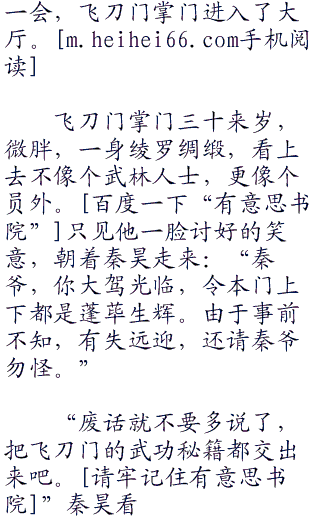 一会，飞刀门掌门进入了大
厅。[m.heihei66.com手机阅
读]
飞刀门掌门三十来岁，
微胖，一身绫罗绸缎，看上
去不像个武林人士，更像个
员外。[百度一下“有意思书
院”]只见他一脸讨好的笑
意，朝着秦昊走来：“秦
爷，你大驾光临，令本门上
下都是蓬荜生辉。由于事前
不知，有失远迎，还请秦爷
勿怪。”
“废话就不要多说了，
把飞刀门的武功秘籍都交出
来吧。[请牢记住有意思书
院]”秦昊看